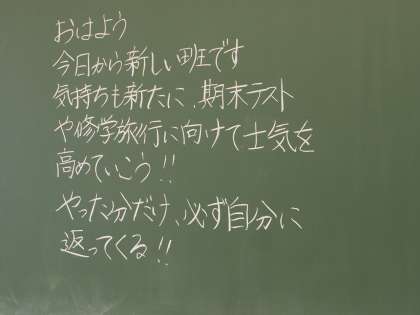 おはよう
今日から新しい班です
気持ちも新たに、期末テスト
や修学旅行に向けて士気を
高めていこう!!
やった分だけ、必ず自分に
返ってくる!!